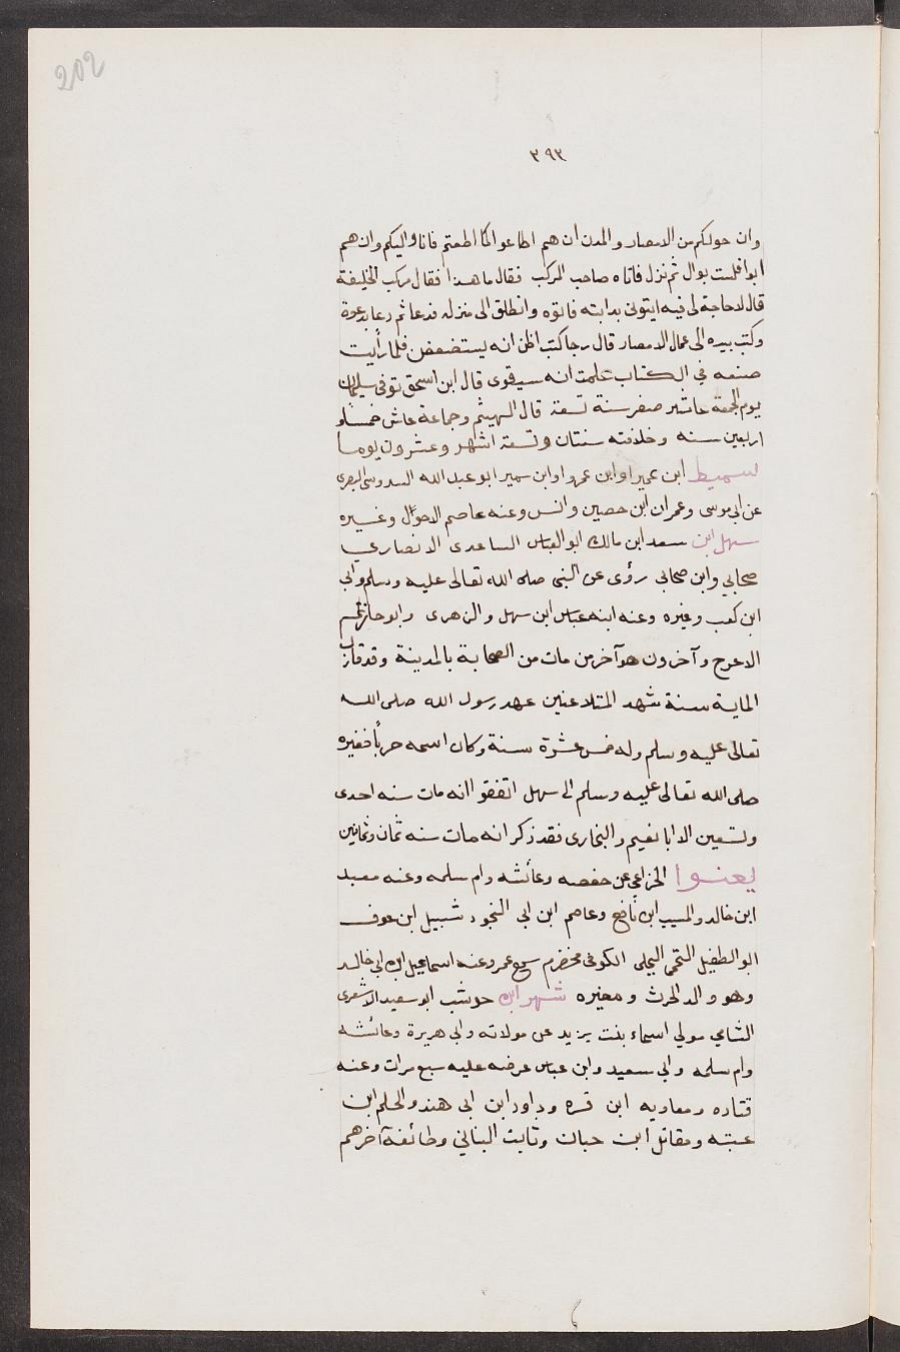 202
٣٩٣
وان حولكم من الامصار والمدن ان هم اطاعوا كما اطعتم فانا واليكم وان هم
ابوا فلست بوال ثم نزل فاتاه صاحب المركب فقال ما هذا فقال مركب الخليفة
قال لا حاجة لى فيه ايتونى بدابته فاتوه وانطلق الى منزله فدعا ثم دعا بدعوة
وكتب بيده الى عمال الامصار قال رجا كتب اظن انه يستضعفن فلما رأيت
صنعه في الكتاب علمت انه سيقوى قال ابن اسحق توفى سليمان
يوم الجمعة عاشر صفر سنة تسعة قال الهيثم وجماعة عاش خمسا و
اربعين سنه وخلافته سنتان وتسعة اشهر وعشرون يوما
سميط ابن عمير او ابن عمرو او ابن سمير ابو عبد الله السدوسى البصرى
عن ابى موسى وعمران ابن حصين وانس وعنه عاصم الاحول وغيره
سهل ابن سعد ابن مالك ابو العباس الساعدى الانصاري
صحابي وابن صحابى رؤى عن النبى صلى الله تعالى عليه وسلم وابى
ابن كعب وغيره وعنه ابنه عباس ابن سهل والزهرى وابو حازم
الاعرج وآخرون هو آخر من مات من الصحابة بالمدينة وقد قارب
الماية سنة شهد المتلاعنين عهد رسول الله صلى الله
تعالى عليه وسلم وله خمس عشرة سنة وكان اسمه حربا فغيره
صلى الله تعالى عليه وسلم الى سهل اتفقوا انه مات سنه احدى
وتسعين الا ابا نعيم والبخارى فقد ذكر انه مات سنه ثمان وثمانين
الخزاعي عن حفصه وعائشه وام سلمه وعنه معبد
ابن خالد والمسيب ابن نافع وعاصم ابن ابى النجود شبيل ابن عوف
ابو الطفيل البجلى الكوفى مخضرم سمع عمر وعنه اسماعيل ابن ابى خالد
وهو والد الحرث ومغيره شهر ابن حوشب ابو سعيد الاشعرى
الشامي مولي اسماء بنت يزيد عن مولاته وابى هريرة وعائشه
وام سلمه وابى سعيد وابن عباس عرضه عليه سبع مرات وعنه
قتاده ومعاويه ابن قره وداود ابن ابى هند والحلم ابن
عتبه ومقاتل ابن حبان وثابت البناني وطائفة آخرهم